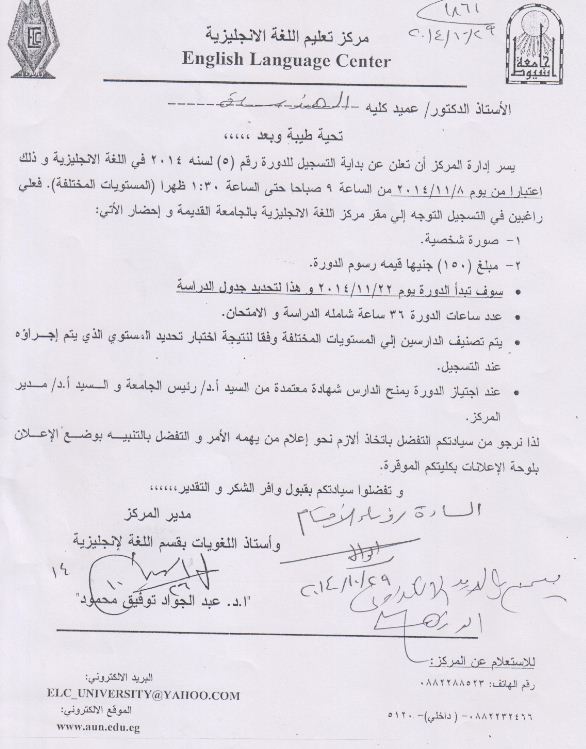 ١٨٦١
٢٠١٤/١٠/٢٩
جامعة أسيوط
ELC
مركز تعليم اللغة الانجليزية
English Language Center
الأستاذ الدكتور/ عميد كليه الهندسة
تحية طيبة وبعد ,,,,,
يسر إدارة المركز أن تعلن عن بداية التسجيل للدورة رقم (٥) لسنه ٢٠١٤ في اللغة الانجليزية و ذلك
اعتبارا من يوم ٢٠١٤/١١/٨ من الساعة ٩ صباحا حتى الساعة ١:٣٠ ظهرا (المستويات المختلفة). فعلي
راغبين في التسجيل التوجه إلي مقر مركز اللغة الانجليزية بالجامعة القديمة و إحضار الأتي:
١- صورة شخصية.
٢- مبلغ (١٥٠) جنيها قيمه رسوم الدورة.
• سوف تبدأ الدورة يوم ٢٠١٤/١١/٢٢ و هذا لتحديد جدول الدراسة
• عدد ساعات الدورة ٣٦ ساعة شامله الدراسة و الامتحان.
• يتم تصنيف الدارسين إلي المستويات المختلفة وفقا لنتيجة اختبار تحديد المستوي الذي يتم إجراؤه
عند التسجيل.
• عند اجتياز الدورة يمنح الدارس شهادة معتمدة من السيد أ.د/ رئيس الجامعة و السيد أ.د/ مدير
المركز.
لذا نرجو من سيادتكم التفضل باتخاذ ألازم نحو إعلام من يهمه الأمر و التفضل بالتنبيه بوضع الإعلان
بلوحة الإعلانات بكليتكم الموقرة.
و تفضلوا سيادتكم بقبول وافر الشكر و التقدير,,,,,,
مدير المركز
وأستاذ اللغويات بقسم اللغة لإنجليزية
"ا.د. عبد الجواد توفيق محمود"
السادة رؤساء الأقسام
٢٠١٤/١٠/٢٩
للاستعلام عن المركز:
رقم الهاتف: ٠٨٨٢٢٨٨٥٢٣
٠٨٨٢٢٣٢٤٦٦- (داخلي)- ٥١٢٠
البريد الالكتروني:
ELC_UNIVERSITY@YAHOO.COM
الموقع الالكتروني:
www.aun.edu.eg